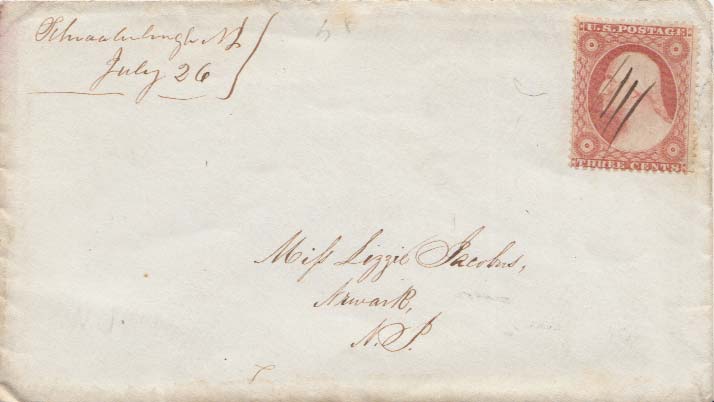 Schraalenburgh NJ
July 26
U.S. POSTAGE
THREE CENTS
Miss Lizzie Jacobus,
Newark,
N.J.